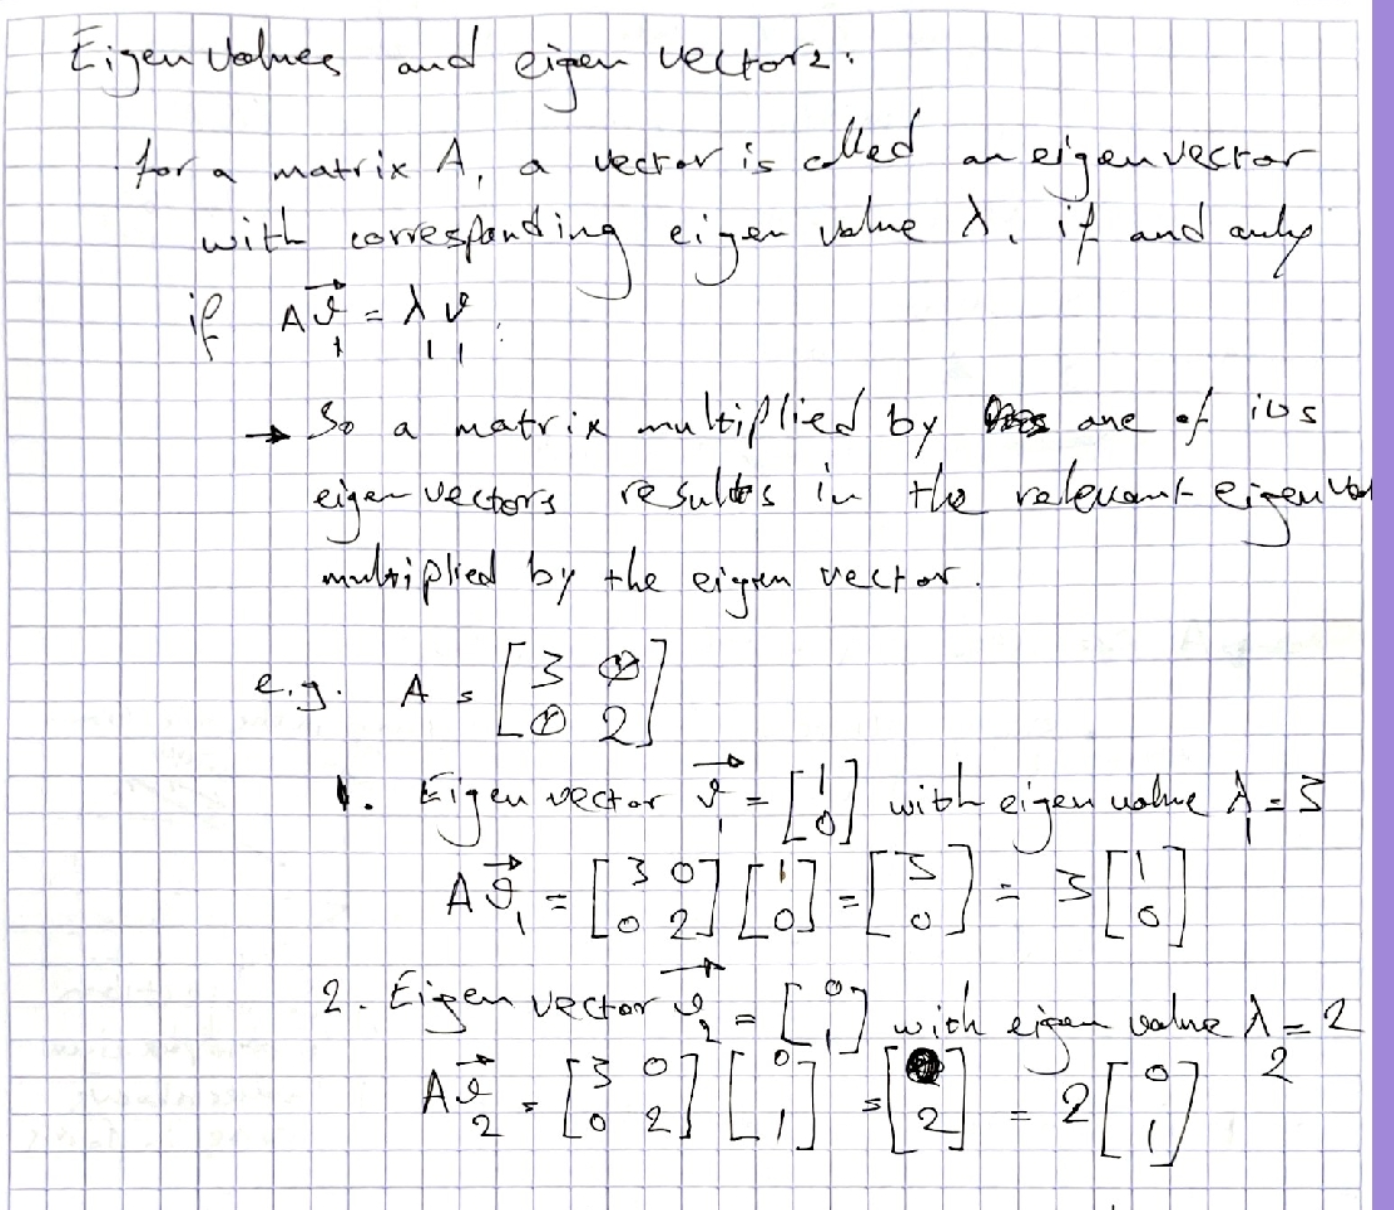 Eigen values and eigen vectors:
for a matrix A, a vector is called an eigenvector
with corresponding eigen value λ, if and only
if A v⃗₁ = λ₁ v₁.
→ So a matrix multiplied by one of its
eigenvectors results in the relevant eigenval
multiplied by the eigen vector.
e.g. A = [3 0; 0 2]
1. Eigen vector v⃗₁ = [1; 0] with eigen value λ₁ = 3
A v⃗₁ = [3 0; 0 2] [1; 0] = [3; 0] = 3 [1; 0]
2. Eigen vector v⃗₂ = [0; 1] with eigen value λ₂ = 2
A v⃗₂ = [3 0; 0 2] [0; 1] = [ ; 2] = 2 [0; 1]